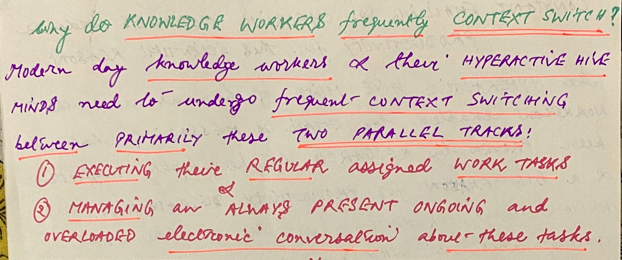 why do KNOWLEDGE WORKERS frequently CONTEXT SWITCH?
Modern day knowledge workers & their HYPERACTIVE HIVE
MINDS need to undergo frequent CONTEXT SWITCHING
between PRIMARILY these TWO PARALLEL TRACKS:
① EXECUTING their REGULAR assigned WORK TASKS
&
② MANAGING an ALWAYS PRESENT ONGOING and
OVERLOADED electronic conversation about these tasks.